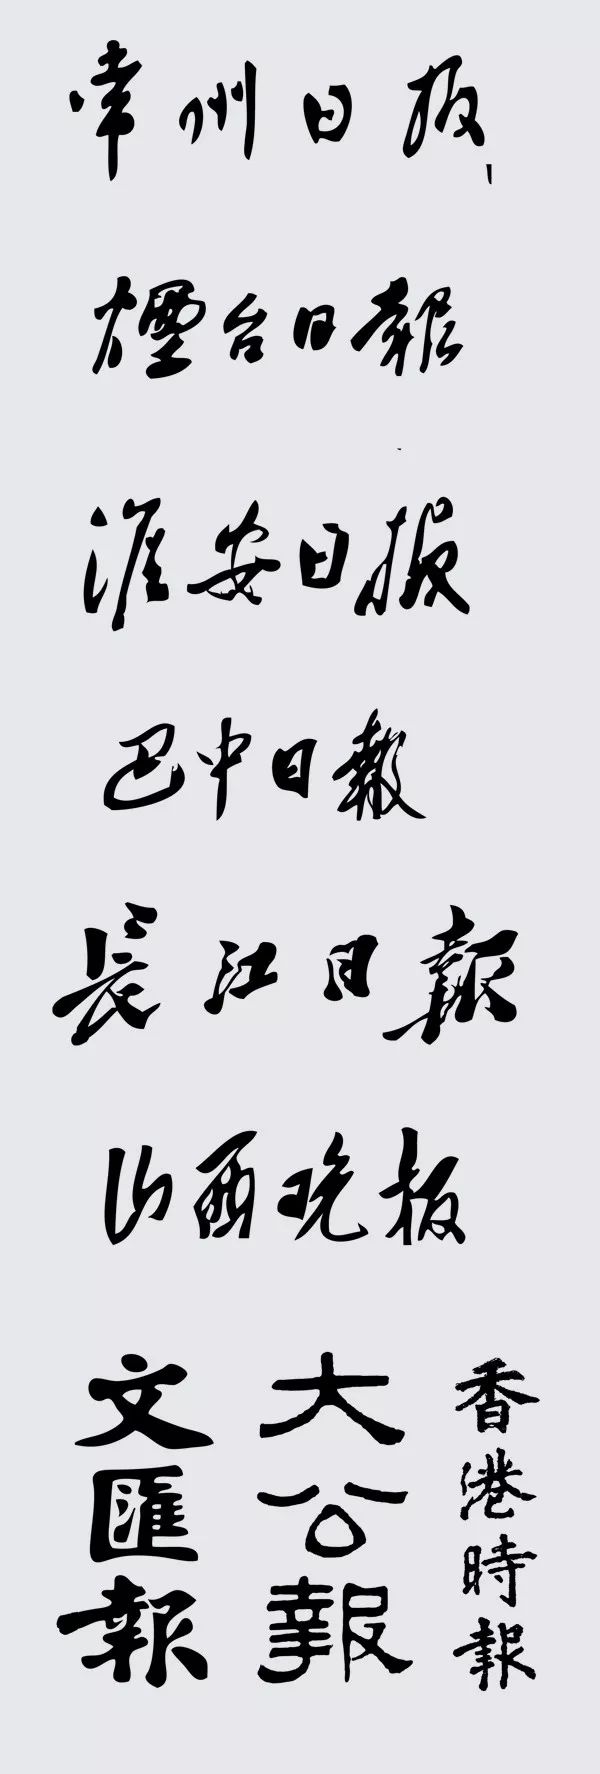 常州日报
煙台日報
淮安日报
巴中日報
長江日報
山西晚报
文匯報
大公報
香港時報